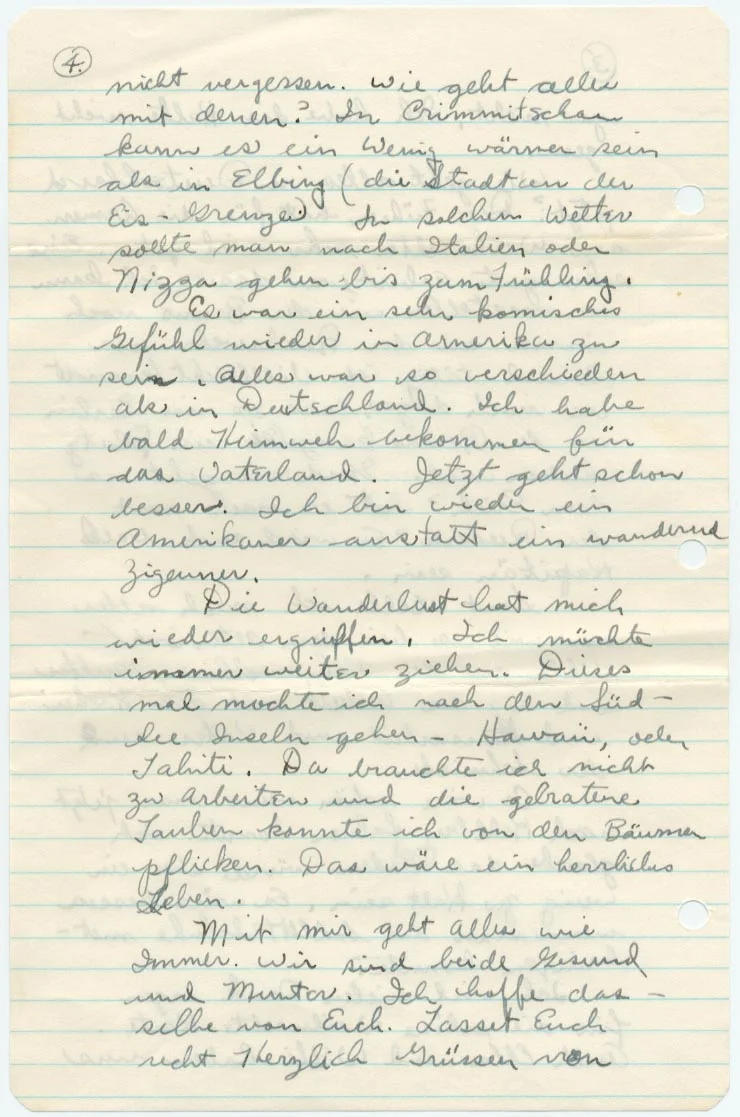 4.
nicht vergessen. Wie geht alles
mit denen? In Crimmitschau
kann es ein Wenig wärmer sein
als in Elbing (die Stadt an der
Eis-Grenze) In solchem Wetter
sollte man nach Italien oder
Nizza gehen bis zum Frühling.
Es war ein sehr komisches
Gefühl wieder in Amerika zu
sein. Alles war so verschieden
als in Deutschland. Ich habe
bald Heimweh bekommen für
das Vaterland. Jetzt geht schon
besser. Ich bin wieder ein
Amerikaner anstatt ein wandernd
Zigeuner.
Die Wanderlust hat mich
wieder ergriffen. Ich möchte
immer weiter ziehen. Dieses
mal mochte ich nach den Süd-
see Inseln gehen - Hawaii, oder
Tahiti. Da brauchte ich nicht
zu Arbeiten und die gebratene
Tauben konnte ich von den Bäumen
pflicken. Das wäre ein herrliches
Leben.
Mit mir geht Alles wie
Immer. Wir sind beide Gesund
und Munter. Ich hoffe das-
selbe von Euch. Lasset Euch
recht Herzlich Grüssen von